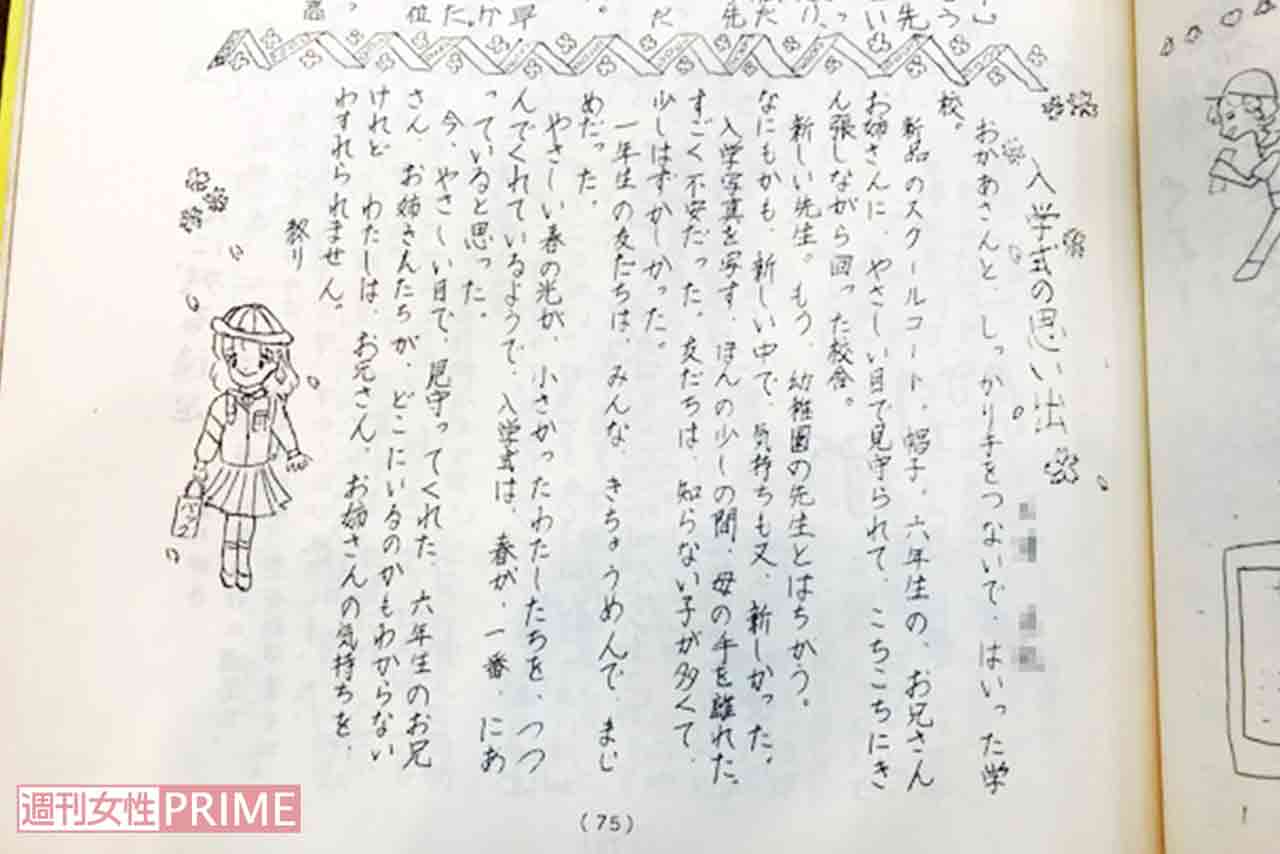 入学式の思い出
おかあさんと、しっかり手をつないで、はいった学
校。
新品のスクールコート。帽子。六年生の、お兄さん
お姉さんに、やさしい目で見守られて、こちこちにき
ん張しながら回った校舎。
新しい先生。もう、幼稚園の先生とはちがう。
なにもかも、新しい中で、気持ちも又、新しかった。
入学写真を写す、ほんの少しの間、母の手を離れた、
すごく不安だった。友だちは、知らない子が多くて、
少しはずかしかった。
一年生の友だちは、みんな、きちょうめんで、まじ
めだった。
やさしい春の光が、小さかったわたしたちを、つつ
んでくれているようで、入学式は、春が、一番、にあ
っていると思った。
今、やさしい目で、見守ってくれた、六年生のお兄
さん、お姉さんたちが、どこにいるのかもわからない
けれど わたしは、お兄さん、お姉さんの気持ちを、
わすれられません。
(75)
週刊女性PRIME